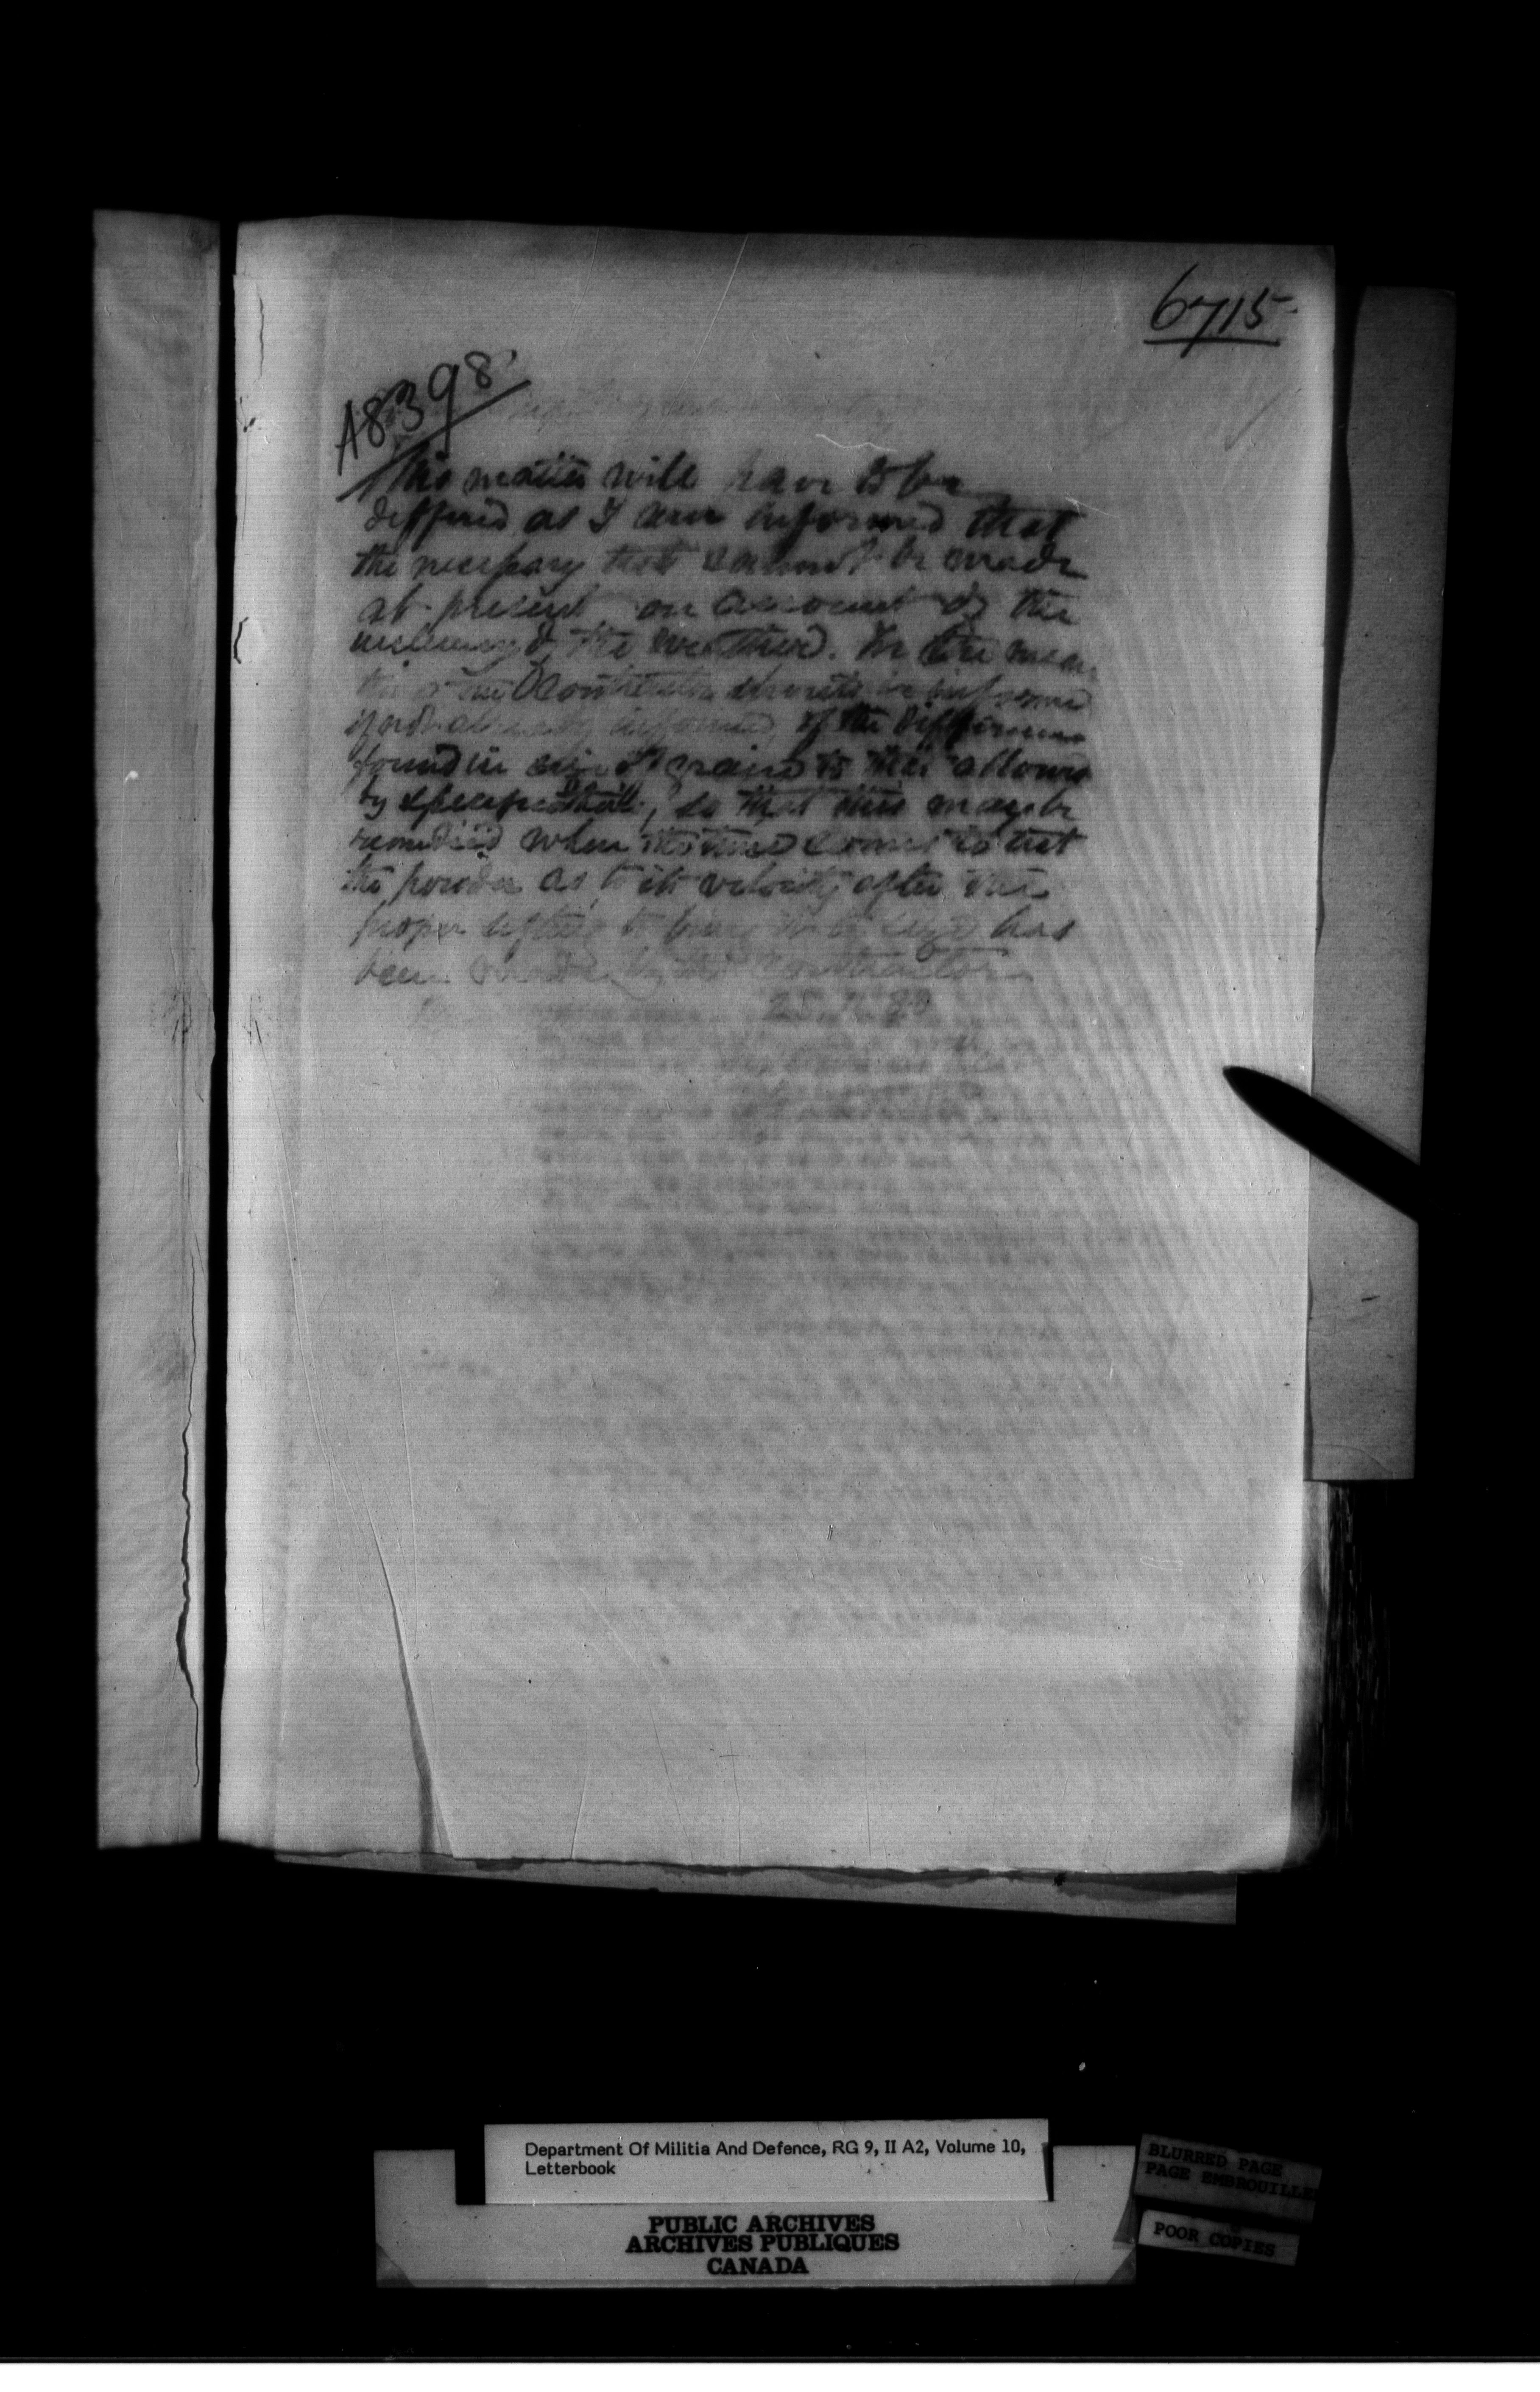 6715
A8398
This matter will have to be
deffered as I am informed that
the necessary test cannot be made
at present on account of the
the weather. In the mean
Contractor should be informed
if not already informed of the difference
found in size of grains to that allowed
by specification, so that this may be
remedied when the time comes to test
the powder as to its velocity after the
proper sifting to bring it to size has
been made by the Contractor
Department Of Militia And Defence, RG 9, II A2, Volume 10,
Letterbook
PUBLIC ARCHIVES
ARCHIVES PUBLIQUES
CANADA
BLURRED PAGE
PAGE EMBROUILLEE
POOR COPIES